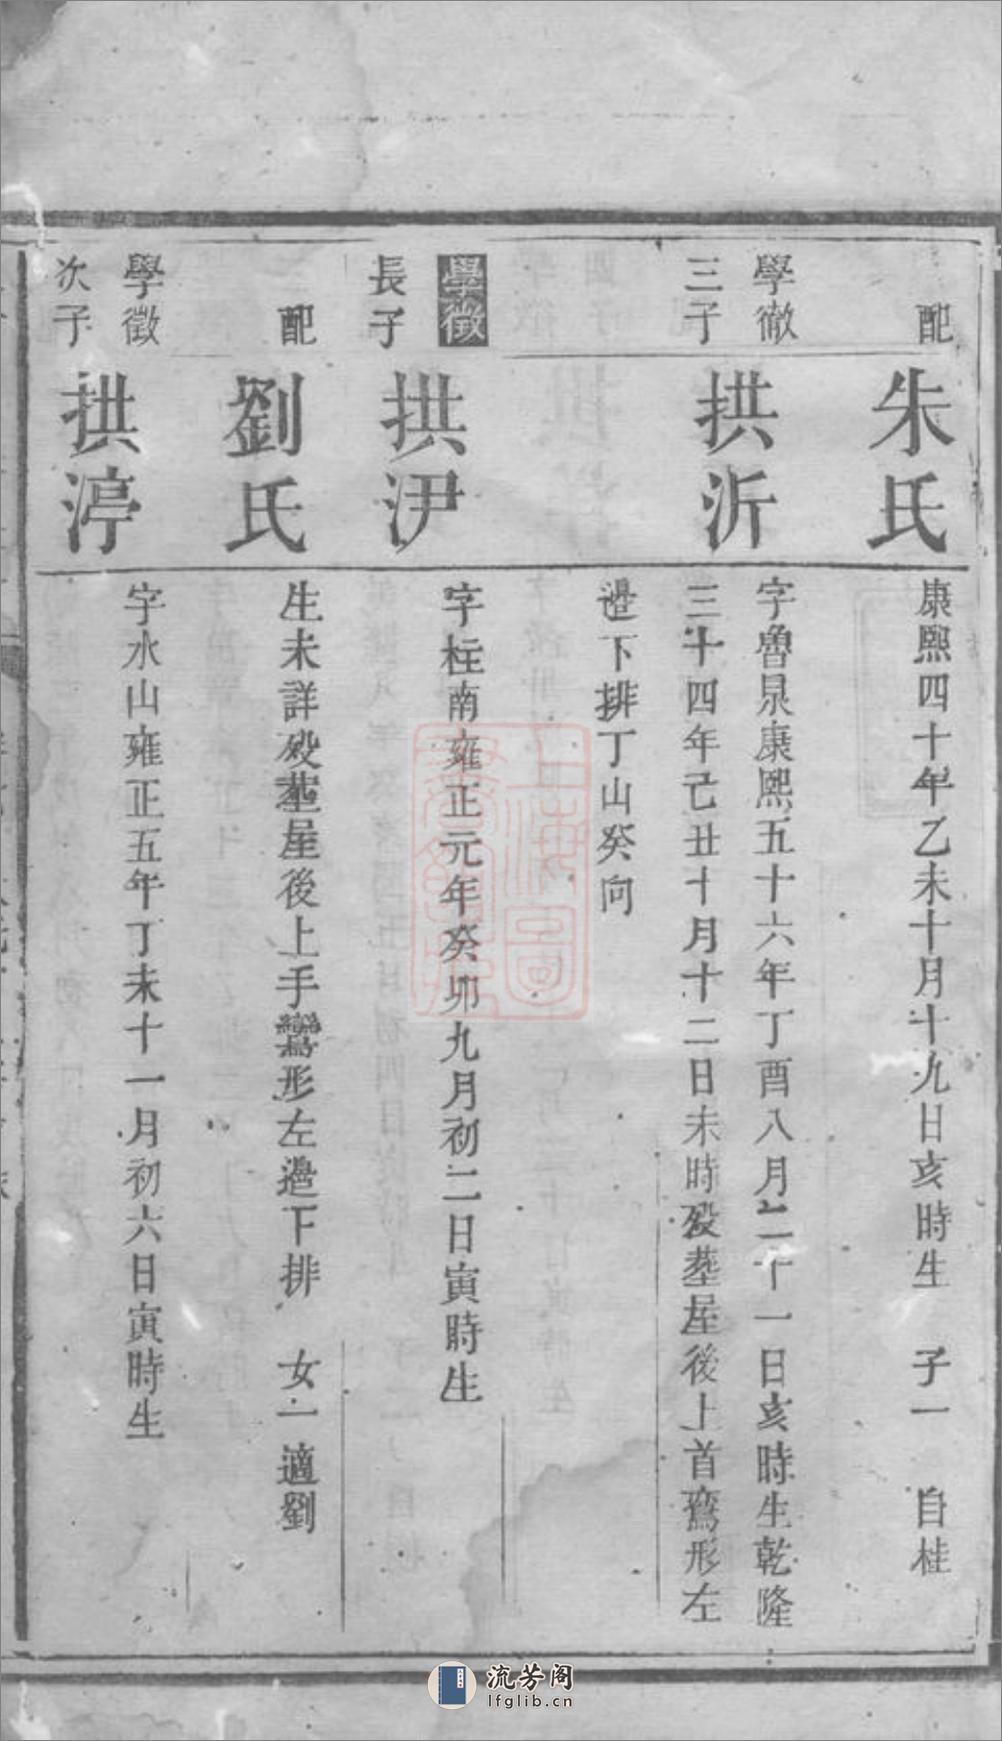 配
朱氏
康熙四十年乙未十月十九日亥時生 子一 自桂
學徹
三子
拱沂
字魯泉康熙五十六年丁酉八月二十一日亥時生乾隆
三十四年己丑十月十二日未時殁塟屋後上首鵉形左
邉下排丁山癸向
學徵
長子
拱沪
字柱南雍正元年癸卯九月初二日寅時生
配
劉氏
生未詳殁塟屋後上手鸞形左邉下排 女一適劉
學徵
次子
拱渟
字水山雍正五年丁未十一月初六日寅時生
上海圖
書館藏
流芳阁
lfglib.cn